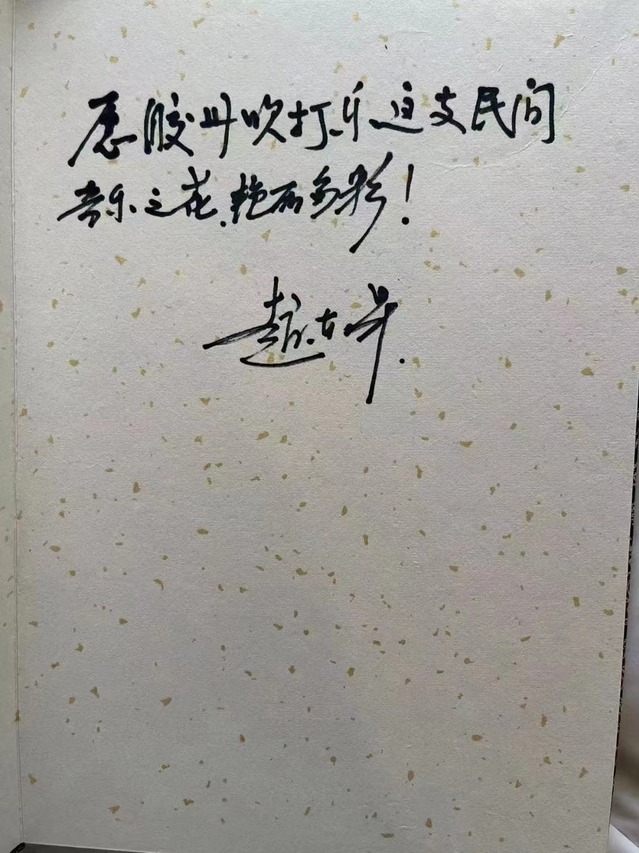 愿胶州吹打乐这支民间
音乐之花,艳丽多彩!
赵